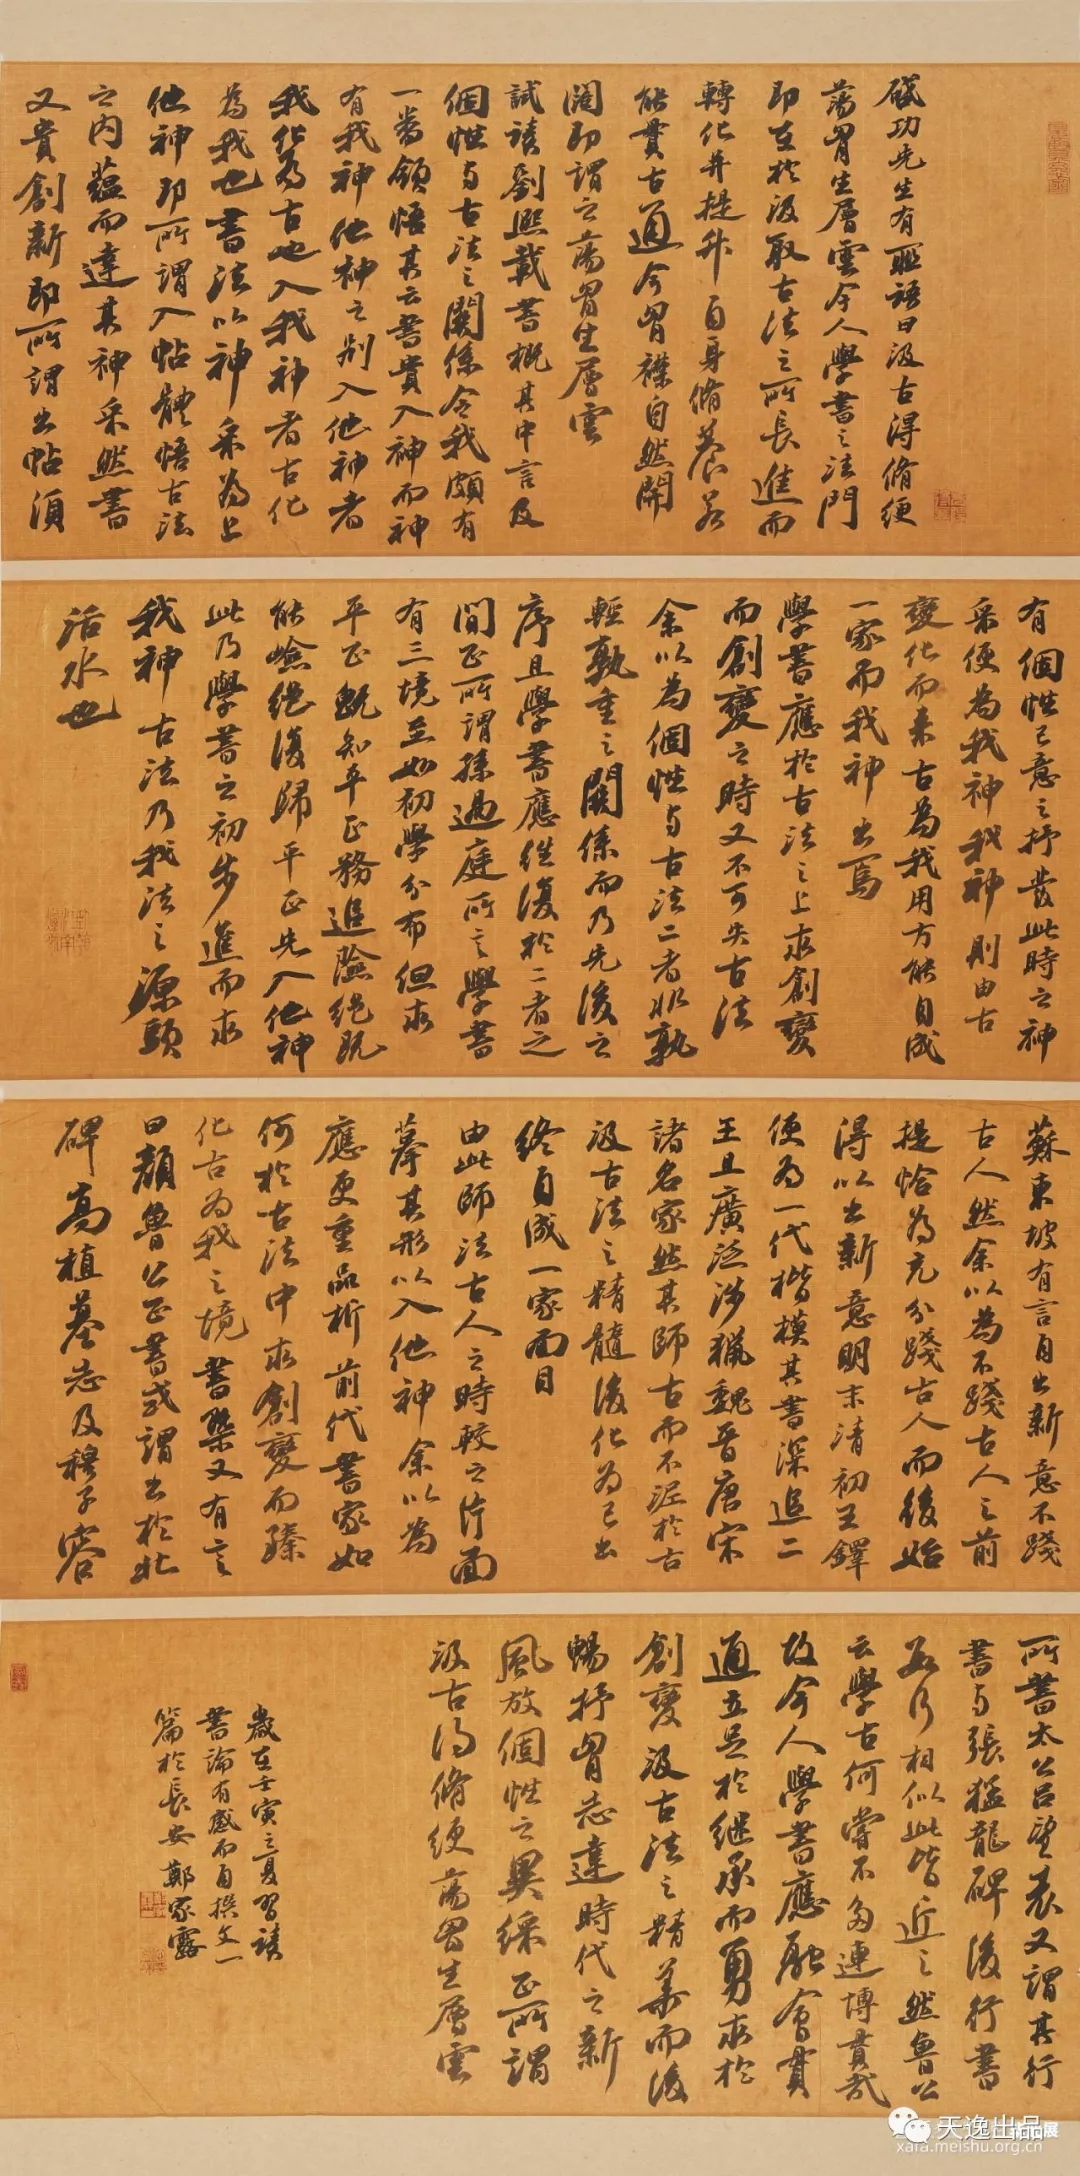 啟功先生有聯語曰汲古得脩綆
蕩胷生層雲今人學書之法門
即在於汲取古法之所長進而
轉化并提升自身脩養若
能貫古通今胷襟自然開
闊即謂之蕩胷生層雲
試讀劉熙載書概其中言及
個性与古法之關係令我頗有
一番領悟其云書貴入神而神
有我神他神之別入他神者
我化為古也入我神者古化
為我也書法以神采為上
他神即所謂入帖體悟古法
之內蘊而達其神采然書
又貴創新即所謂出帖須
有個性己意之抒發此時之神
采便為我神我神則由古
變化而來古為我用方能自成
一家而我神出焉
學書應於古法之上求創變
而創變之時又不可失古法
余以為個性与古法二者非孰
輕孰重之關係而乃先後之
序且學書應往復於二者之
間正所謂孫過庭所言學書
有三境至如初學分布但求
平正既知平正務追險絕既
能嶮絕復歸平正先入他神
此乃學書之初步進而求
我神古法乃我法之源頭
活水也
蘇東坡有言自出新意不踐
古人然余以為不踐古人之前
提恰為充分踐古人而後始
得以出新意明末清初王鐸
便為一代楷模其書深追二
王且廣泛涉獵魏晉唐宋
諸名家然其師古而不泥於古
汲古法之精髓後化為己出
終自成一家面目
由此師法古人之時較之片面
摹其形以入他神余以為
應更重品析前代書家如
何於古法中求創變而臻
化古為我之境書槩又有言
曰顏魯公正書或謂出於北
碑高植墓志及穆子容
所書太公呂望表又謂其行
書与張猛龍碑後行書
若行相似此皆近之然魯公
云學古何嘗不多連博貫哉
故今人學書應融會貫
通立足於繼承而勇求於
創變汲古法之精華而後
暢抒胷志達時代之新
風放個性之異綵正所謂
汲古得脩綆蕩胷生層雲
歲在壬寅之夏習讀
書論有感而自撰文一
篇於長安鄭家露
天逸出品
展
xafa.meishu.org.cn